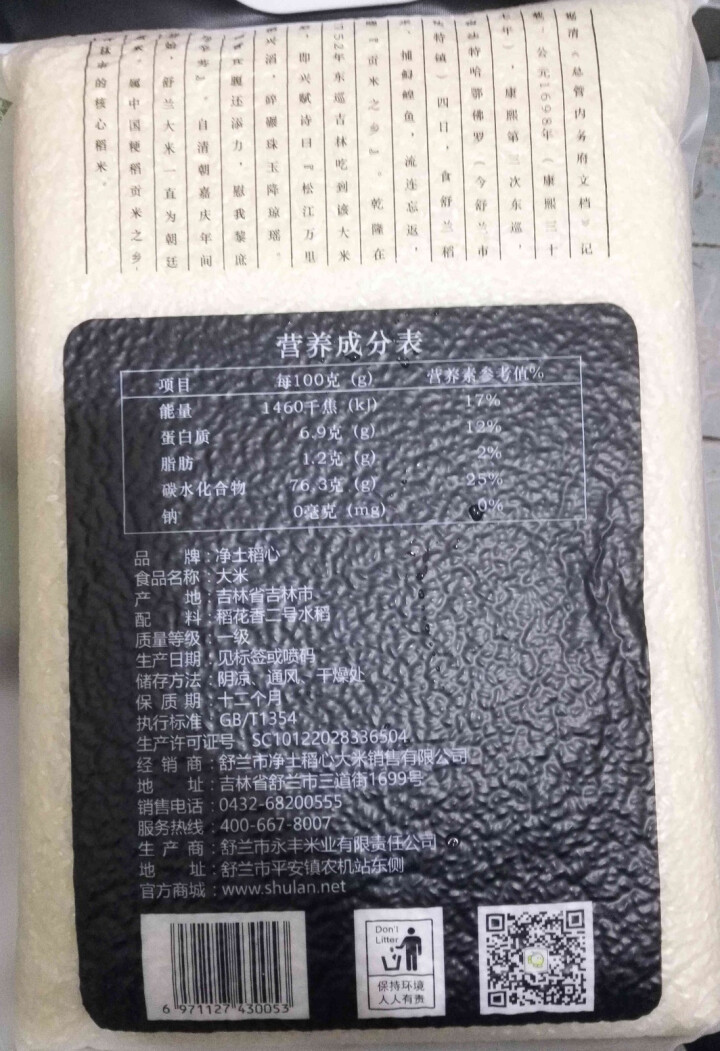 清《总管内务府文档》记
公元1698年（康熙三十
七年），康熙第三次东巡，
特哈鄂佛罗（今舒兰市
法特镇）四日，食舒兰稻
米、捕鲟鳇鱼，流连忘返，
『贡米之乡』。乾隆在
52年东巡吉林吃到该大米
，即兴赋诗曰『松江万里
兴酒，碎碾珠玉降琼瑶。
我腹还添力，慰我黎庶
』。自清朝嘉庆年间
始，舒兰大米一直为朝廷
米，属中国粳稻贡米之乡
的核心稻米。
营养成分表
项目 每100克（g） 营养素参考值%
能量 1460千焦（kJ） 17%
蛋白质 6.9克（g） 12%
脂肪 1.2克（g） 2%
碳水化合物 76.3克（g） 25%
钠 0毫克（mg） 0%
品牌：净土稻心
食品名称：大米
产地：吉林省吉林市
配料：稻花香二号水稻
质量等级：一级
生产日期：见标签或喷码
储存方法：阴凉、通风、干燥处
保质期：十二个月
执行标准：GB/T1354
生产许可证号 SC10122028336504
经销商：舒兰市净土稻心大米销售有限公司
地址：吉林省舒兰市三道街1699号
销售电话：0432-68200555
服务热线：400-667-8007
生产商：舒兰市永丰米业有限责任公司
地址：舒兰市平安镇农机站东侧
官方商城：www.shulan.net
6 971127 430053
Don't
Litter
保持环境
人人有责